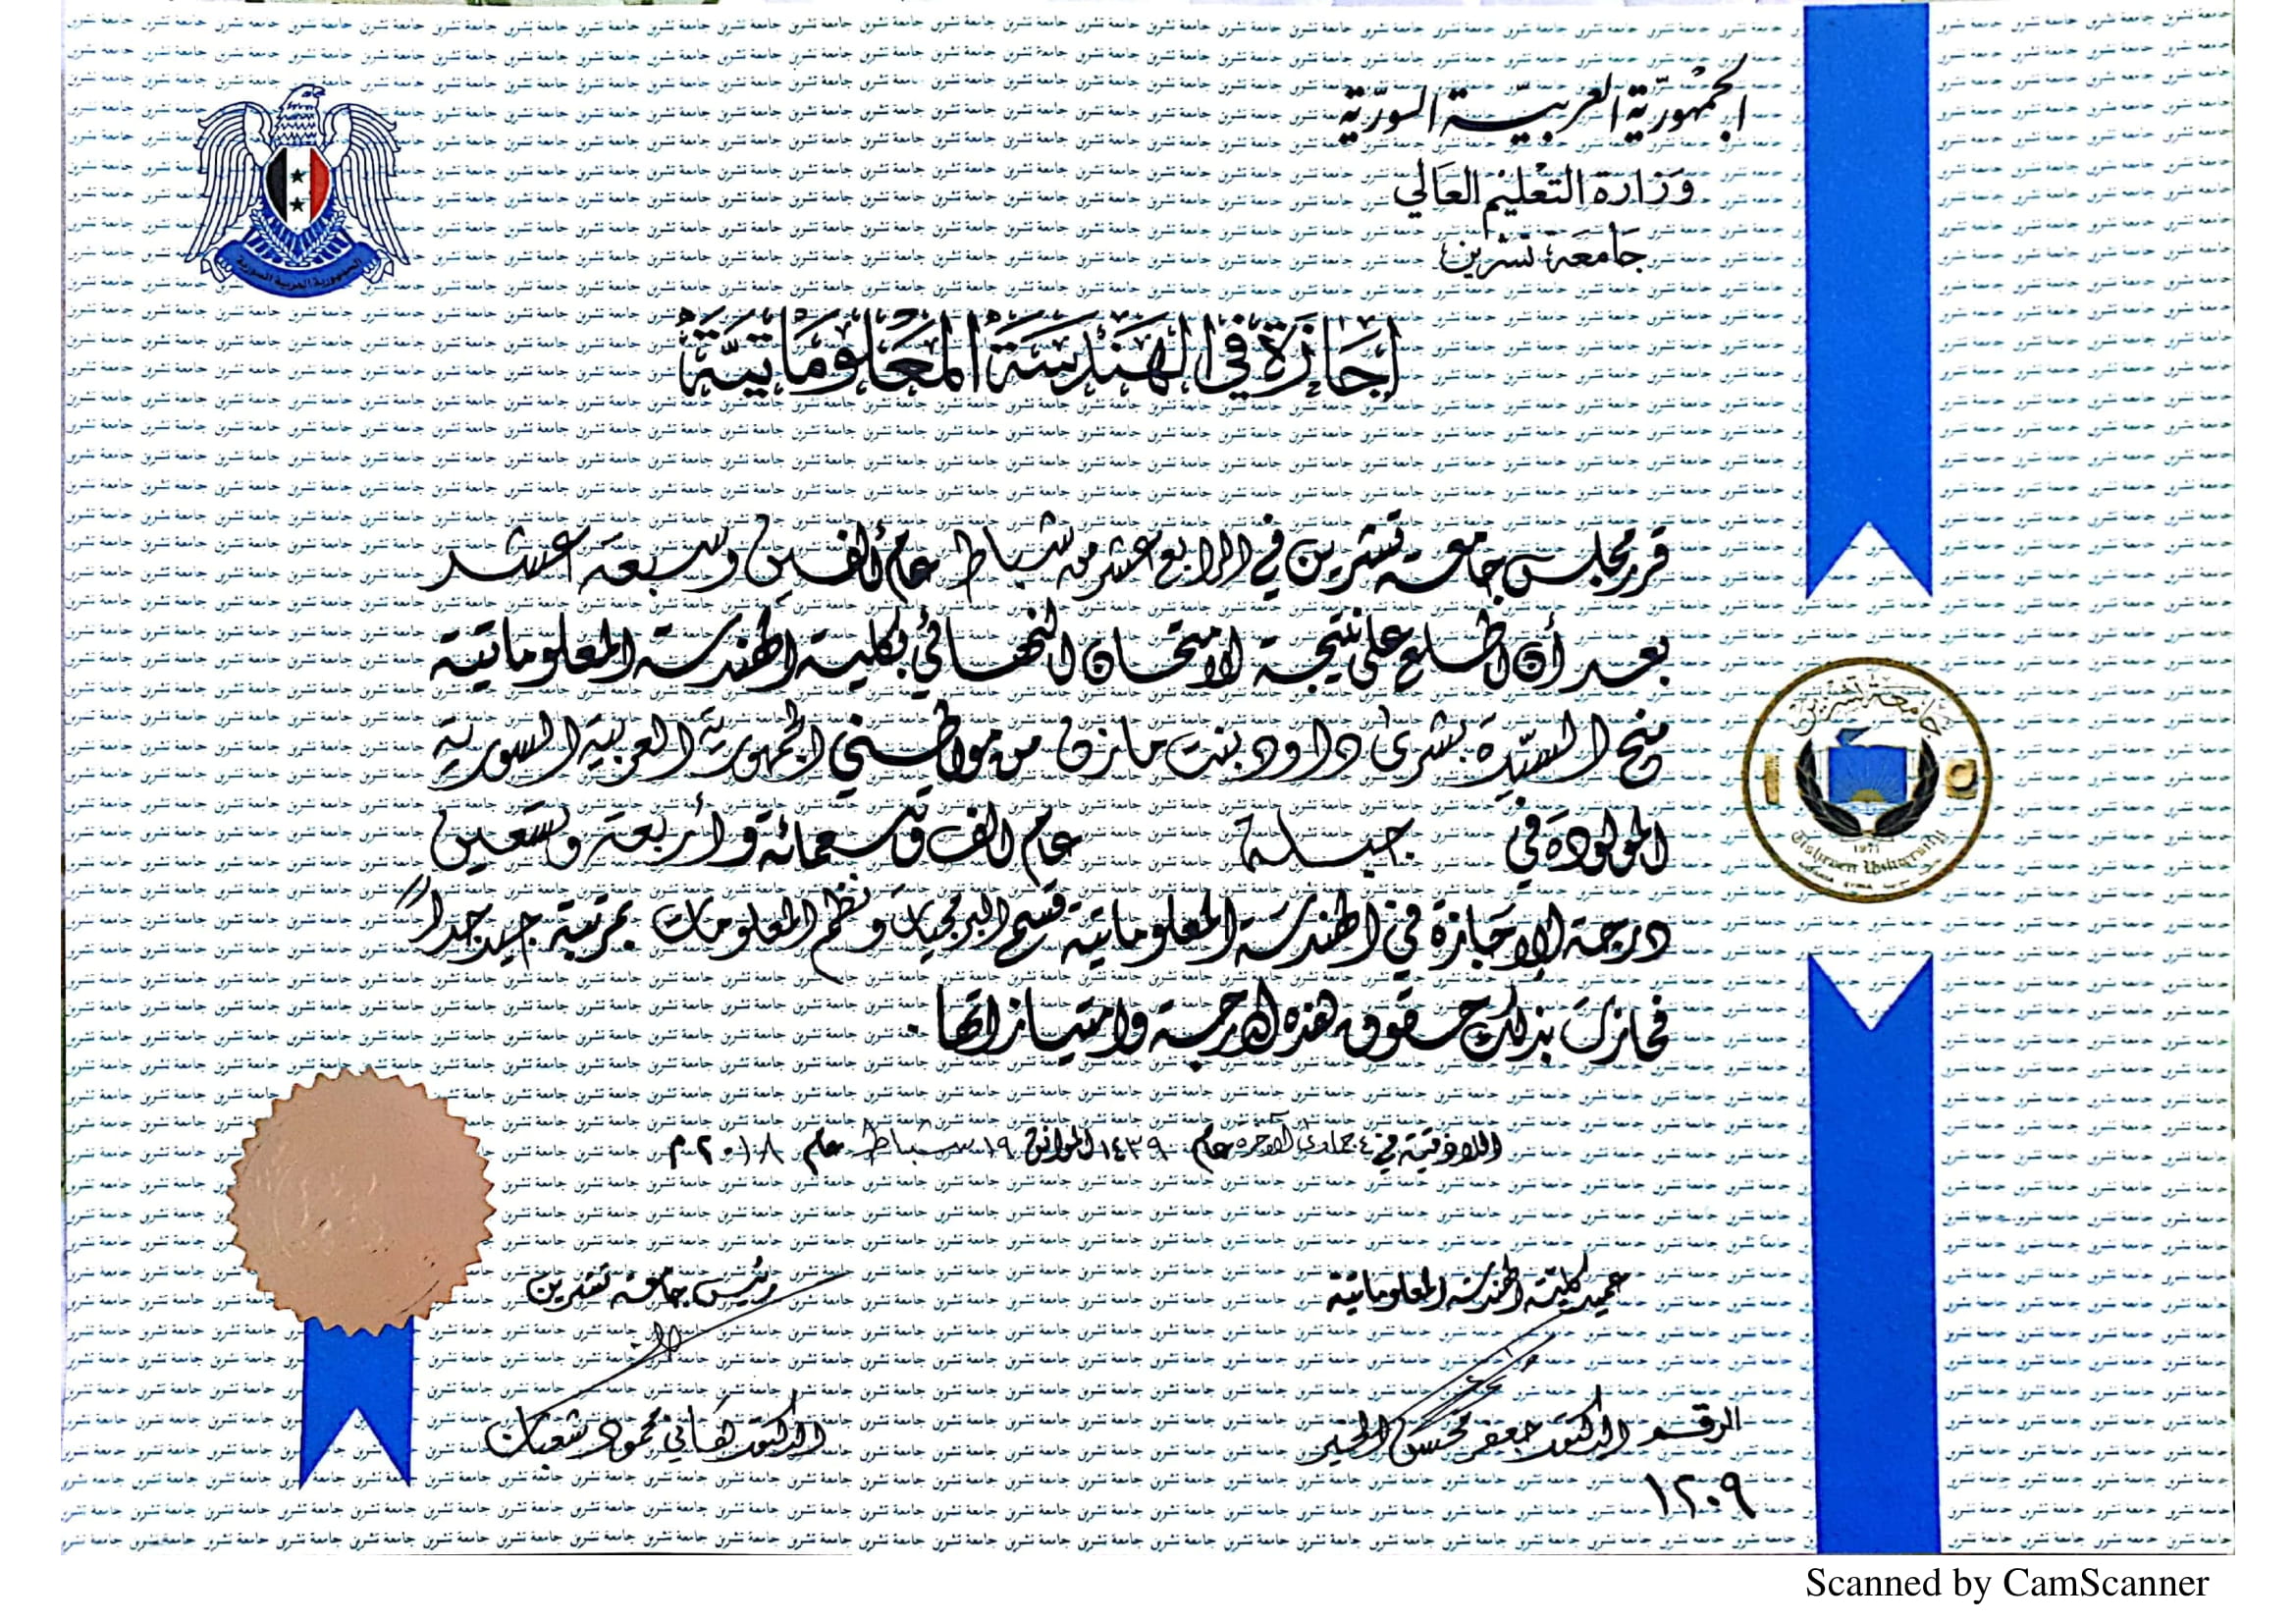 الجمهورية العربية السورية
وزارة التعليم العالي
جامعة تشرين
الجمهورية العربية السورية
إجازة في الهندسة المعلوماتية
قرر مجلس جامعة تشرين في الرابع عشر من شباط عام ألفين وسبعة عشر
بعد أن اطلع على نتيجة الامتحان النهائي بكلية الهندسة المعلوماتية
منح السيدة بشرى داود بنت مازن من مواطني الجمهورية العربية السورية
المولودة في جبلة عام ألف وتسعمائة وأربعة وتسعين
درجة الإجازة في الهندسة المعلوماتية قسم البرمجيات ونظم المعلومات بمرتبة جيد جداً
فحازت بذلك حقوق هذه الدرجة وامتيازاتها.
جامعة تشرين
١٩٧١
Tishreen University
اللاذقية في ٤ جمادى الآخرة عام ١٤٣٩ الموافق ١٩ شباط عام ٢٠١٨ م
عميد كلية الهندسة المعلوماتية
رئيس جامعة تشرين
الرقم الدكتور جعفر الخير
الدكتور هاني محمود شعبان
١٢٠٩
Scanned by CamScanner